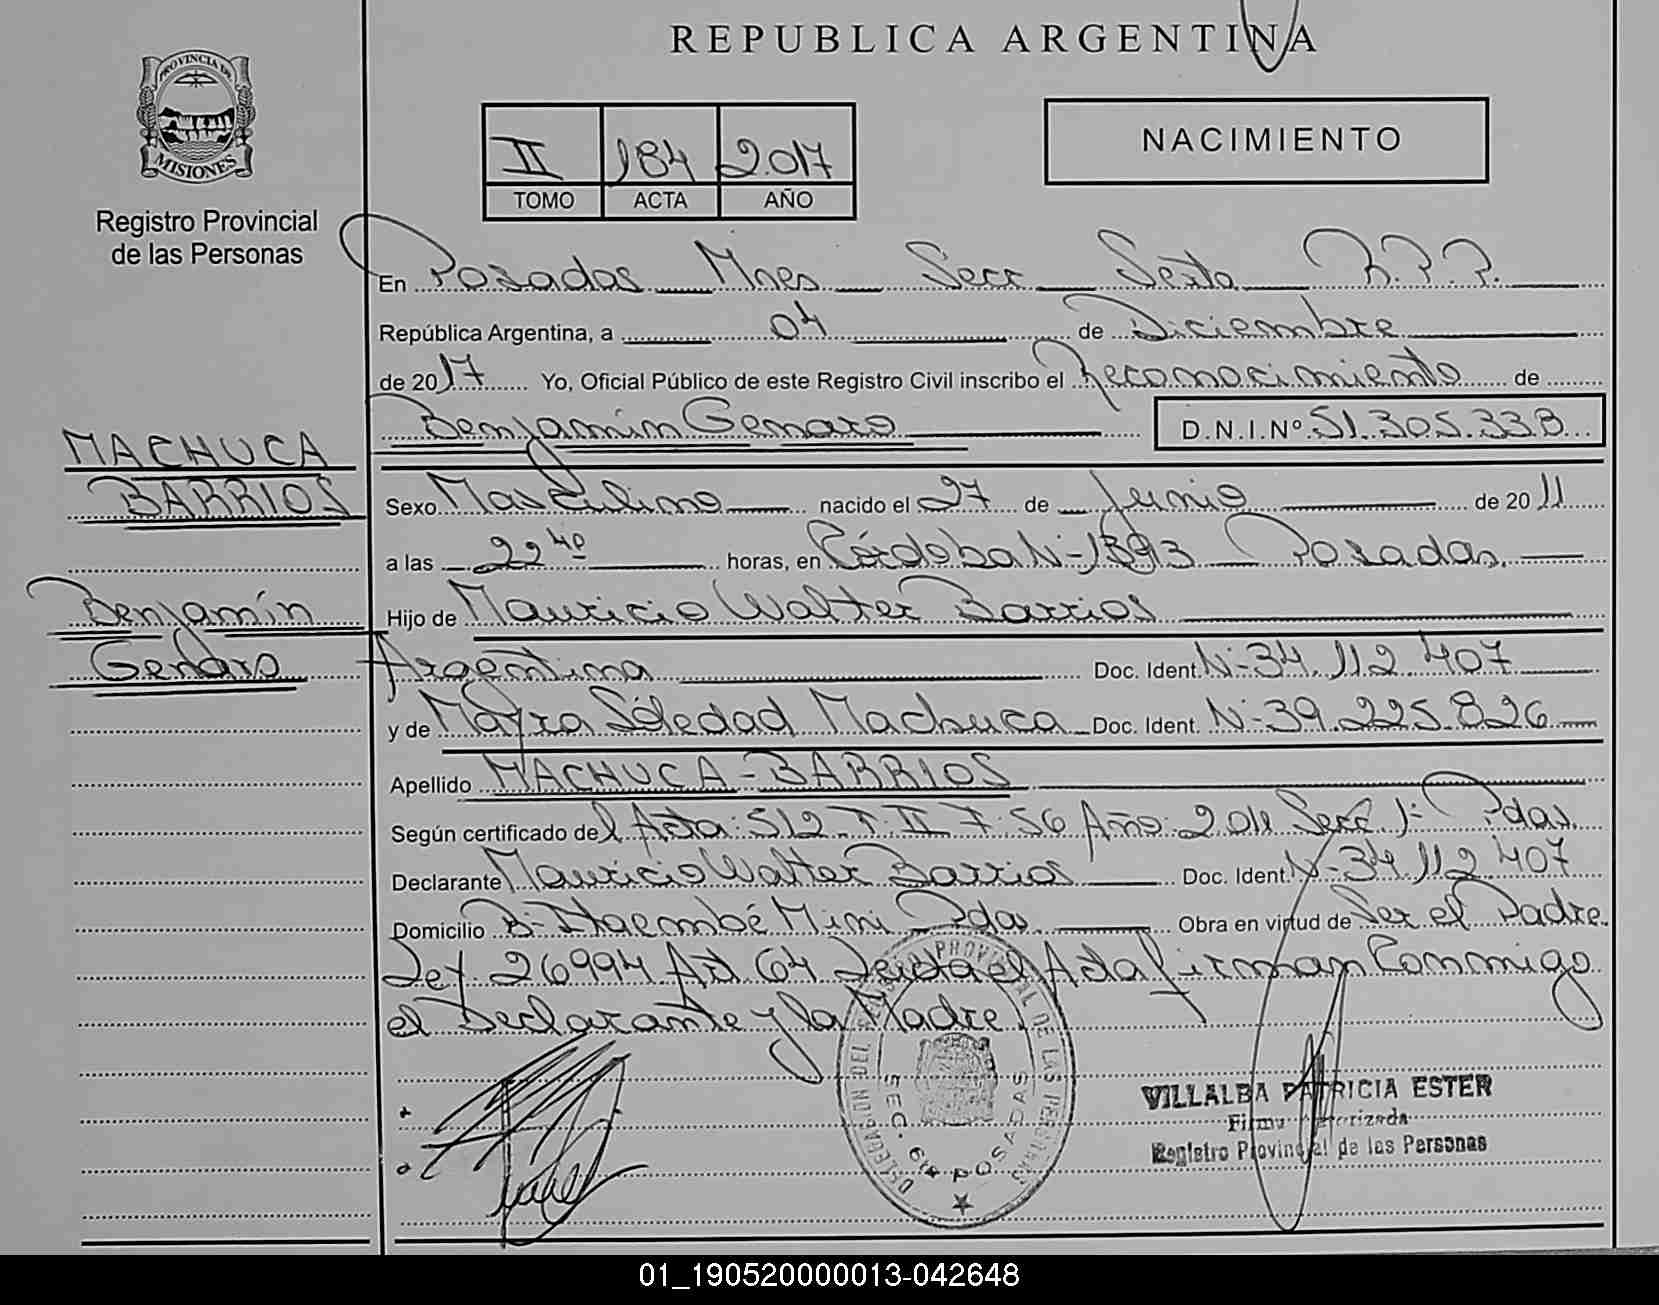 REPUBLICA ARGENTINA
PROVINCIA DE
MISIONES
Registro Provincial
de las Personas
II 184 2017
TOMO ACTA AÑO
NACIMIENTO
En Posadas Mnes Secc Sexta R.P.P.
República Argentina, a 04 de Diciembre
de 2017 Yo, Oficial Público de este Registro Civil inscribo el Reconocimiento de
Benjamín Genaro D.N.I.Nº 51.305.338
MACHUCA
BARRIOS
Benjamín
Genaro
Sexo Masculino nacido el 27 de Junio de 2011
a las 22 40 horas, en Córdoba Nº 1393 Posadas
Hijo de Mauricio Walter Barrios
Argentina Doc. Ident. Nº 34.112.407
y de Mayra Soledad Machuca Doc. Ident. Nº 39.225.826
Apellido MACHUCA-BARRIOS
Según certificado del Acta: 512 T II F 56 Año: 2011 Secc 1º Pdas
Declarante Mauricio Walter Barrios Doc. Ident. Nº 34.112.407
Domicilio Bº Itaembé Mini Pdas Obra en virtud de Ser el Padre
Ley 26994 Art. 64 Leída el Acta firman Conmigo
el Declarante y la Madre
DELEGACION DEL REGISTRO PROVINCIAL DE LAS PERSONAS
SEC. 6ta POSADAS
VILLALBA PATRICIA ESTER
Firma Autorizada
Registro Provincial de las Personas
01_190520000013-042648